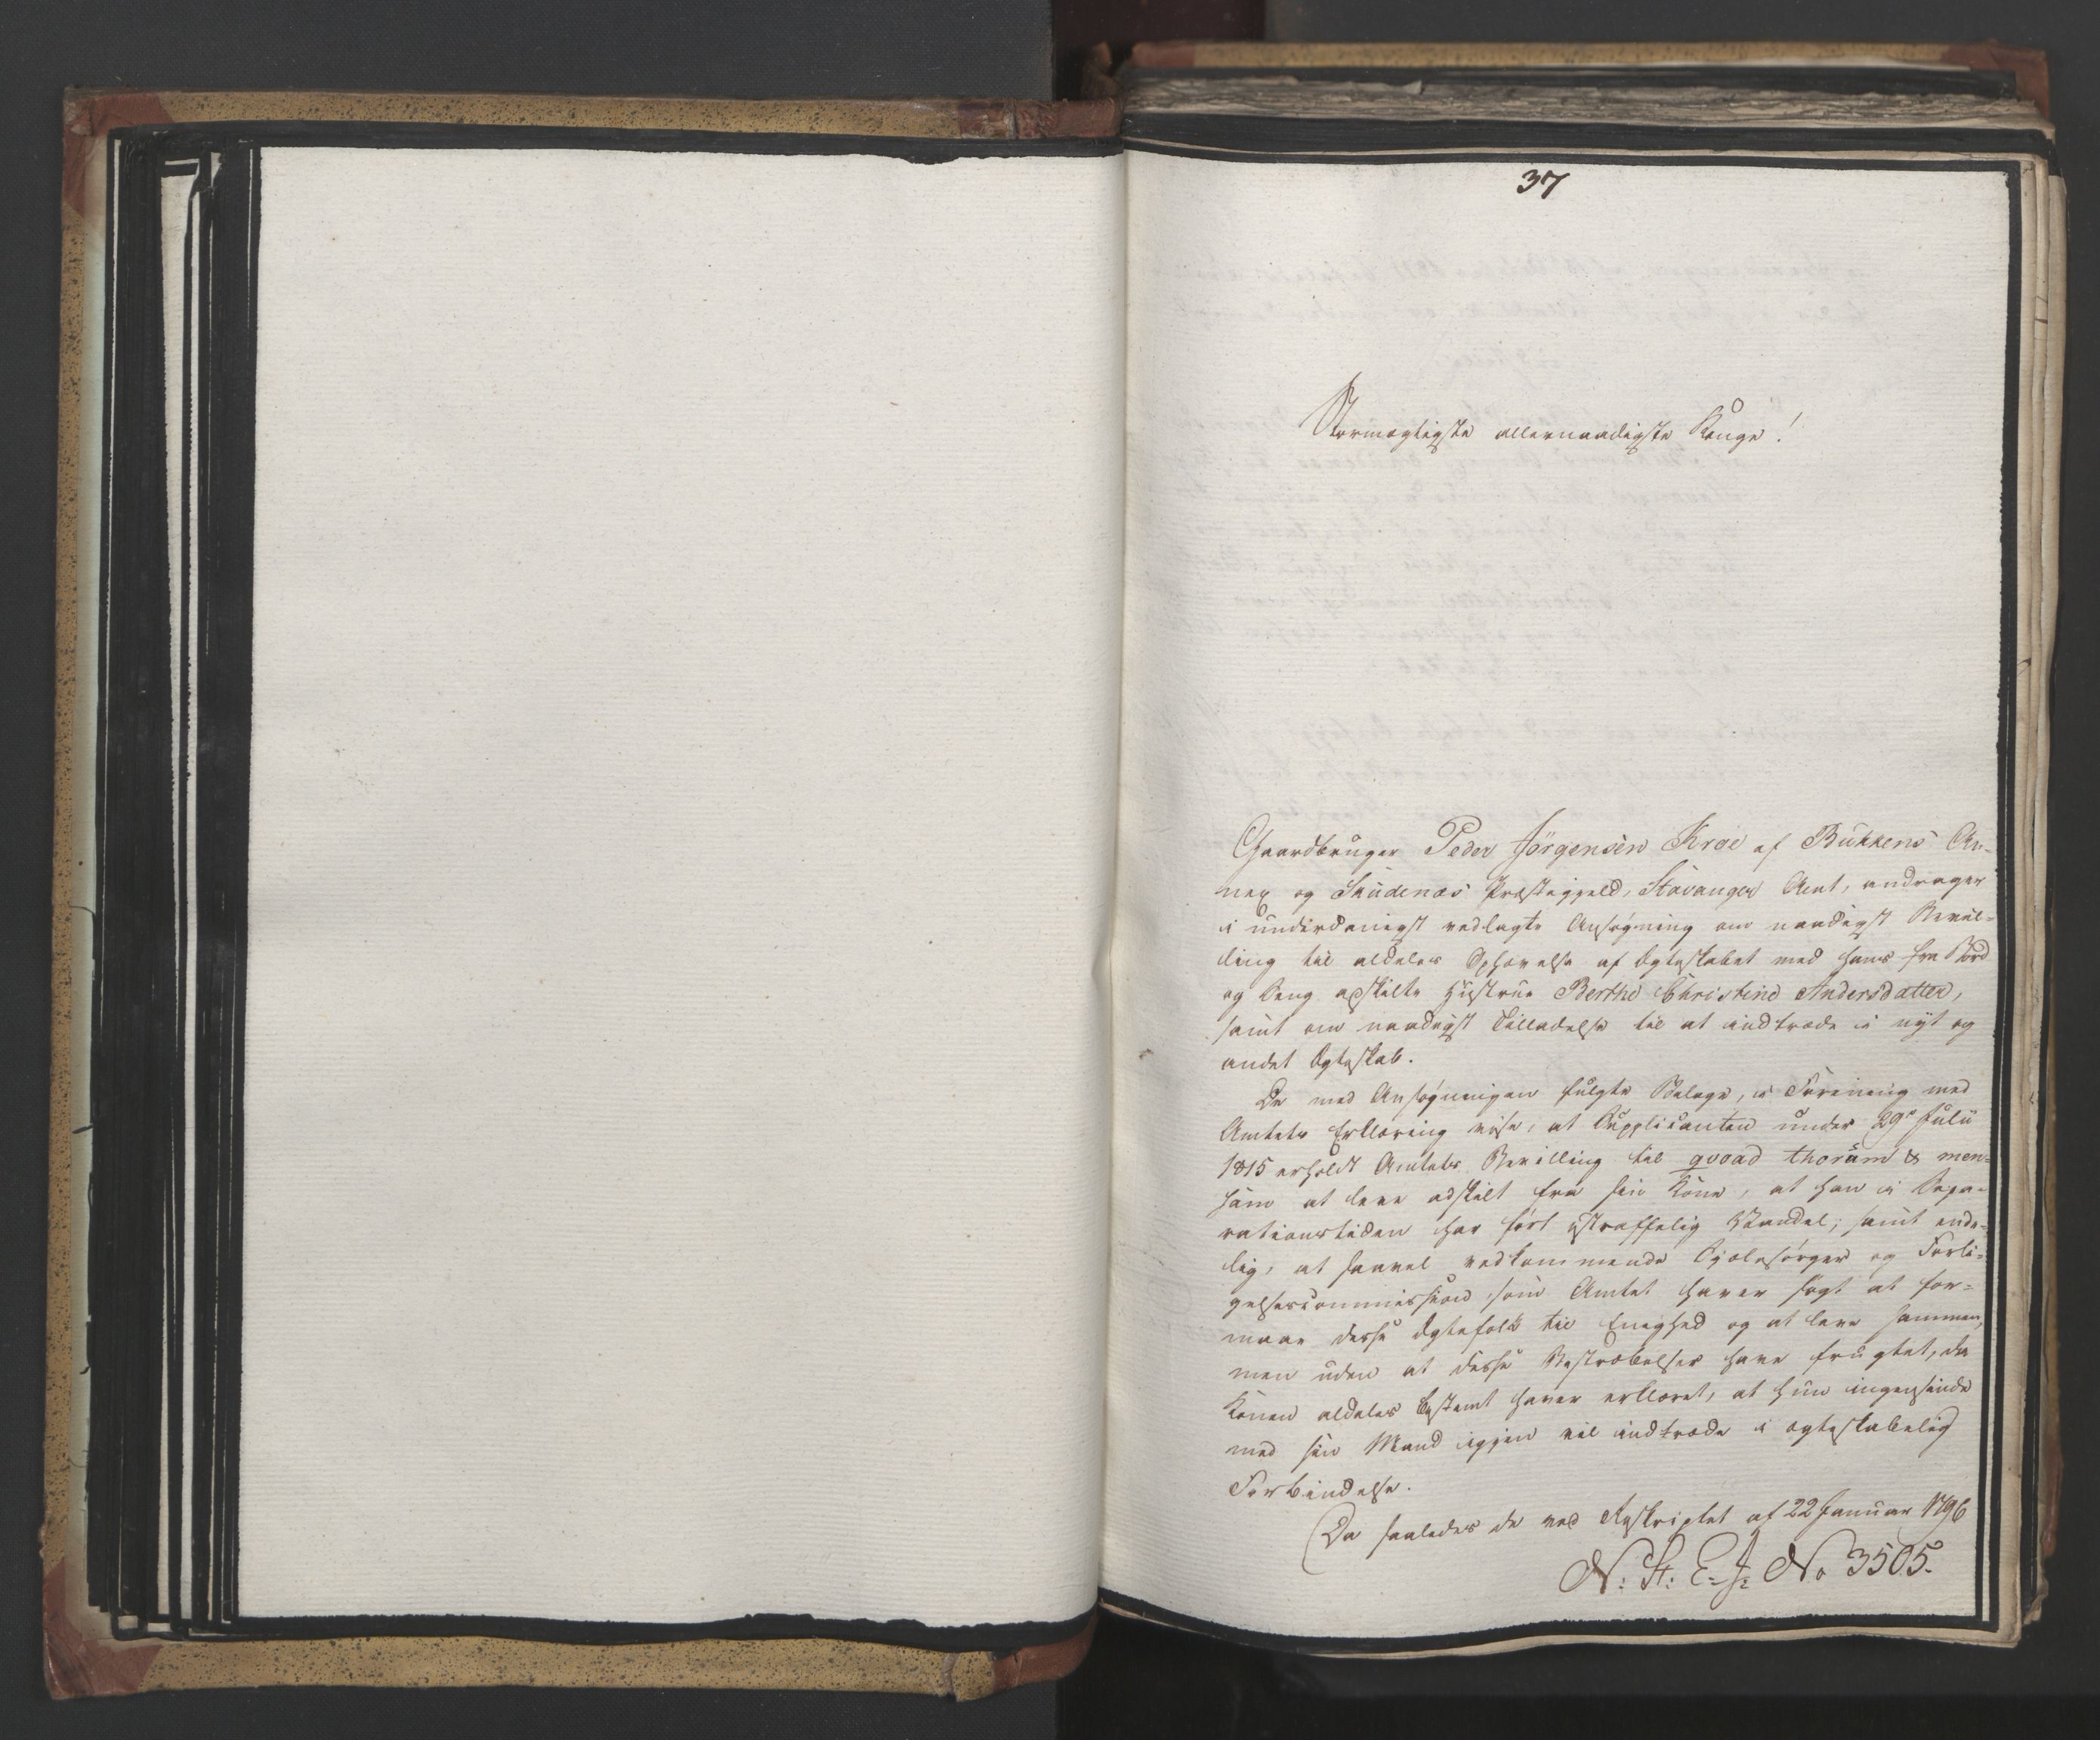 37
Stormægtigste allernaadigste Konge!
Gaardbruger Peder Jörgensen Kroe af Bukkens An-
nex og Skudenæs Præstegjeld, Stavanger Amt, andrager
i underdanigst vedlagte Ansøgning om naadigst Bevil-
ling til aldeles Ophævelse af Ægteskabet med hans fra Bord
og Seng adskilte Hustrue Berthe Christine Andersdatter,
samt om naadigst Tilladelse til at indtræde i nyt og
andet Ægteskab.
De med Ansøgningen fulgte Bilage, i Forening med
Amtets Erklæring vise, at Supplicanten under 29de Julii
1815 erholdt Amtets Bevilling til qvoad thorum & men-
sam at leve adskilt fra sin Kone, at han i Sepa-
rationstiden har ført ustraffelig Vandel, samt ende-
lig, at saavel vedkommende Sjælesörger og Forli-
gelsescommission som Amtet haver søgt at for-
maae disse Ægtefolk til Enighed og at leve sammen,
men uden at disse Bestræbelser have frugtet, da
Konen aldeles bestemt haver erklæret, at hun ingensinde
med sin Mand igjen vil indtræde i ægteskabelig
Forbindelse.
Da saaledes de ved Reskriptet af 22 Januar 1796
N: St: E: J: No 3505.